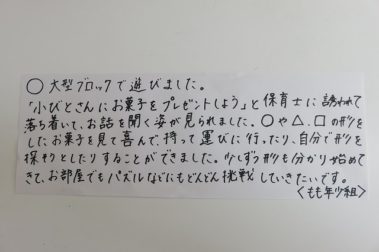 ○ 大型ブロックで遊びました。
「小びとさんにお菓子をプレゼントしよう」と保育士に誘われて
落ち着いて、お話を聞く姿が見られました。○や△、□の形を
したお菓子を見て喜んで、持って運びに行ったり、自分で形を
探そうとしたりすることができました。少しずつ形も分かり始めて
きて、お部屋でもパズルなどにもどんどん挑戦していきたいです。
〈もも年少組〉